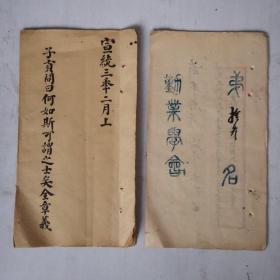 宣統三年二月上
子貢問曰何如斯可謂之士矣全章義
弟 名
勸業學會